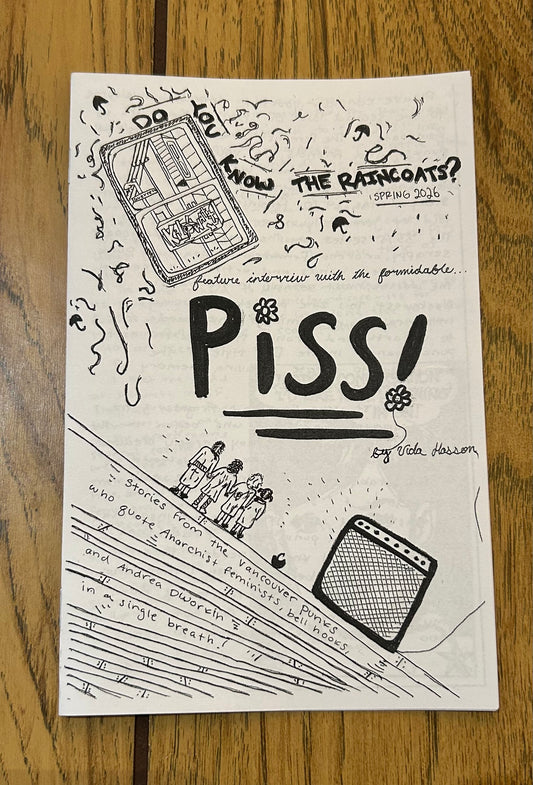 DO YOU KNOW THE RAINCOATS?
SPRING 2026
feature interview with the formidable...
PiSS!
by Vida Hasson
Stories from the Vancouver Punks
who quote Anarchist feminists, bell hooks,
and Andrea Dworkin
in a single breath!